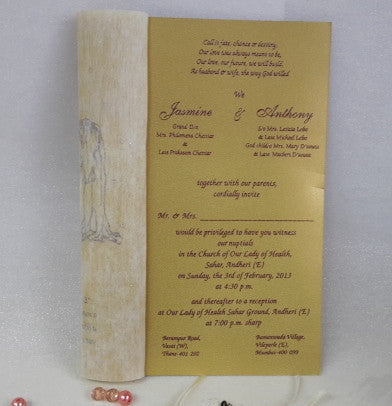 Call it fate, chance or destiny,
Our love was always meant to be,
Our love, our future, we will build,
As husband & wife, the way God willed.
We
Jasmine & Anthony
Grand D/o
Mrs. Philomena Cherriar
& Late Prakasam Cherriar
S/o Mrs. Leticia Lobo
& Late Michael Lobo
God child: Mrs. Mary D'souza
& Late Macbert D'souza
together with our parents,
cordially invite
Mr. & Mrs.
would be privileged to have you witness
our nuptials
in the Church of Our Lady of Health,
Sahar, Andheri (E)
on Sunday, the 3rd of February, 2013
at 4:30 p.m.
and thereafter to a reception
at Our Lady of Health Sahar Ground, Andheri (E)
at 7:00 p.m. sharp
Road,
Vasai (W),
Thane-401 202
Village,
Vileparle (E),
Mumbai-400 099